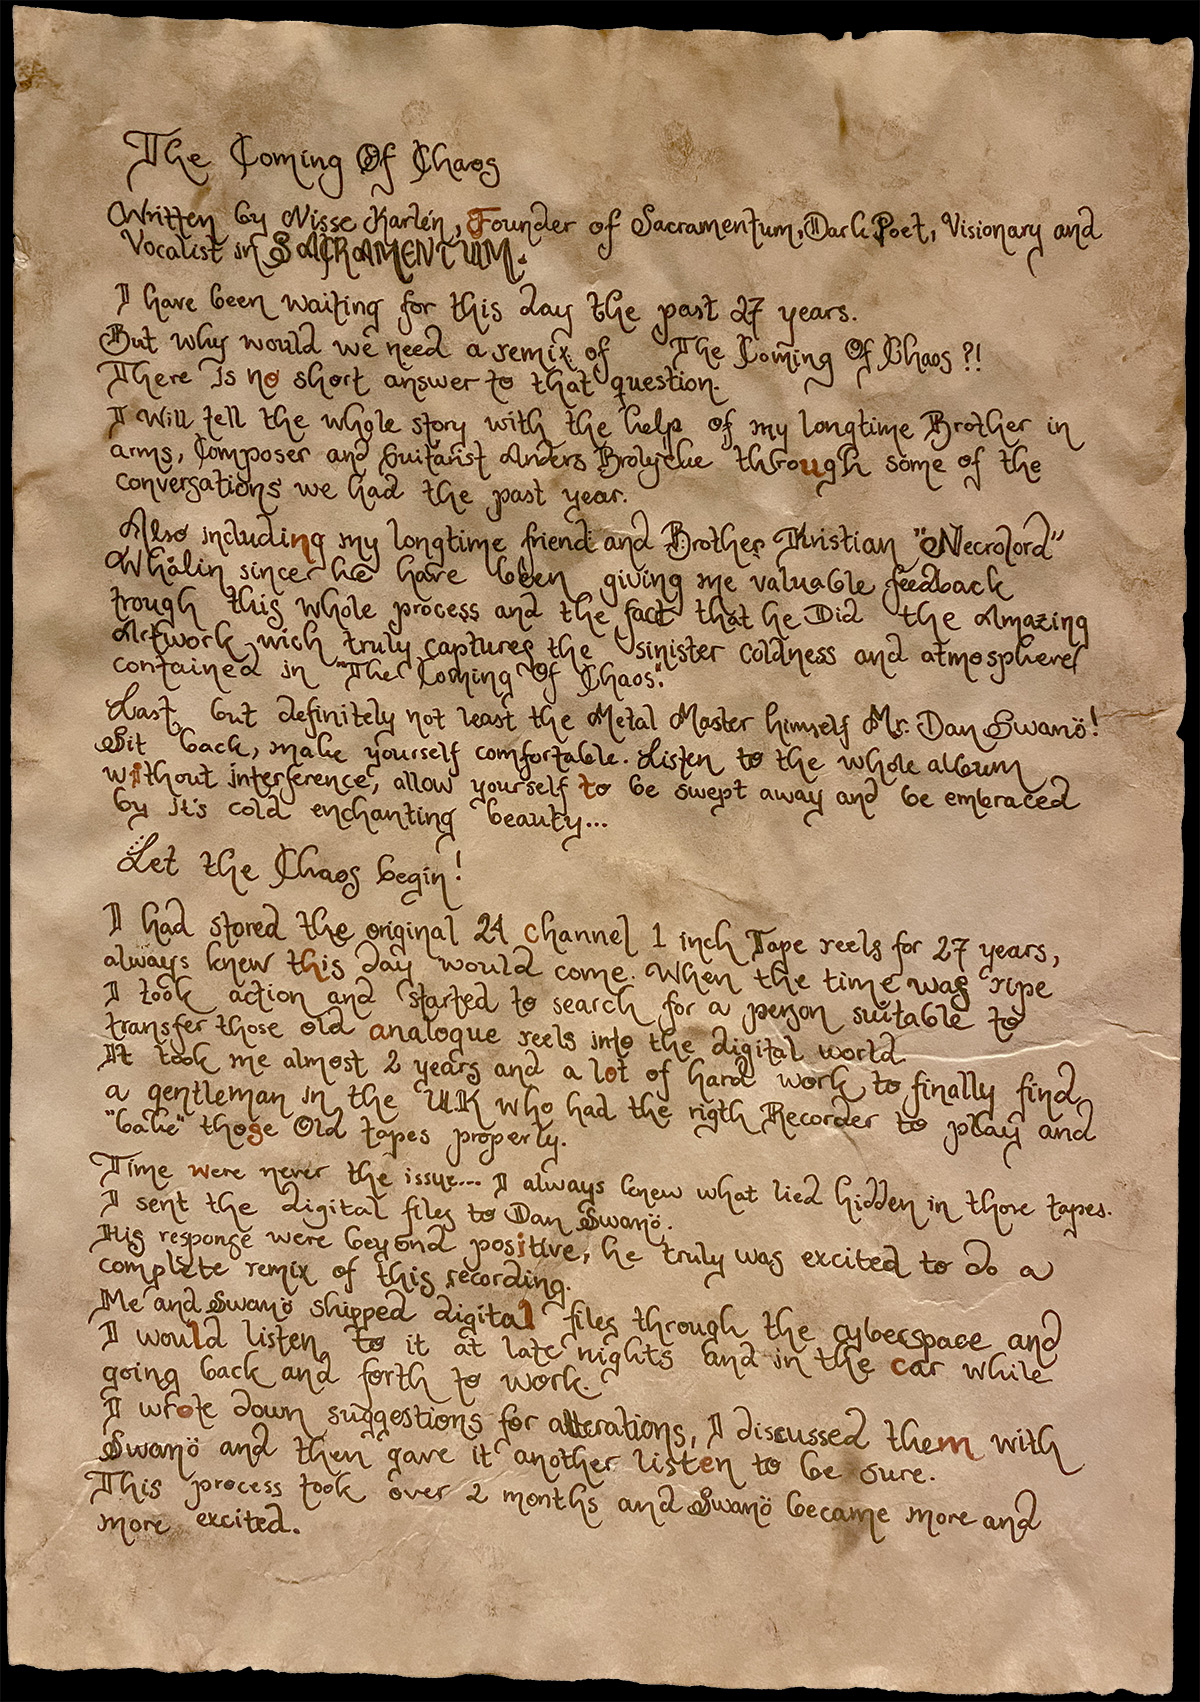 The Coming Of Chaos
Written by Nisse Karlén, Founder of Sacramentum, Dark Poet, Visionary and
Vocalist in SACRAMENTUM.
I have been waiting for this day the past 27 years.
But why would we need a remix of The Coming Of Chaos?!
There Is no short answer to that question.
I Will tell the whole story with the help of my longtime Brother in
arms, Composer and Guitarist Anders Brolycke through some of the
conversations we had the past year.
Also including my longtime friend and Brother Kristian "Necrolord"
Whålin since he have been giving me valuable feedback
trough this whole process and the fact that he Did the Amazing
Artwork wich truly captures the sinister coldness and atmosphere
contained in "The Coming Of Chaos".
Last, but definitely not least the Metal Master himself Mr. Dan Swanö!
Sit back, make yourself comfortable. Listen to the whole album
without interference, allow yourself to be swept away and be embraced
by it's cold enchanting beauty...
Let the Chaos begin!
I had stored the original 24 channel 1 inch Tape reels for 27 years,
always knew this day would come. When the time was ripe
I took action and started to search for a person suitable to
transfer those old analogue reels into the digital world.
It took me almost 2 years and a lot of hard work to finally find
a gentleman in the U.K who had the rigth Recorder to play and
"bake" those Old tapes properly.
Time were never the issue... I always knew what lied hidden in those tapes.
I sent the digital files to Dan Swanö.
His response were beyond positive, he truly was excited to do a
complete remix of this recording.
Me and Swanö shipped digital files through the cyberspace and
I would listen to it at late nights and in the car while
going back and forth to work.
I wrote down suggestions for alterations, I discussed them with
Swanö and then gave it another listen to be sure.
This process took over 2 months and Swanö became more and
more excited.